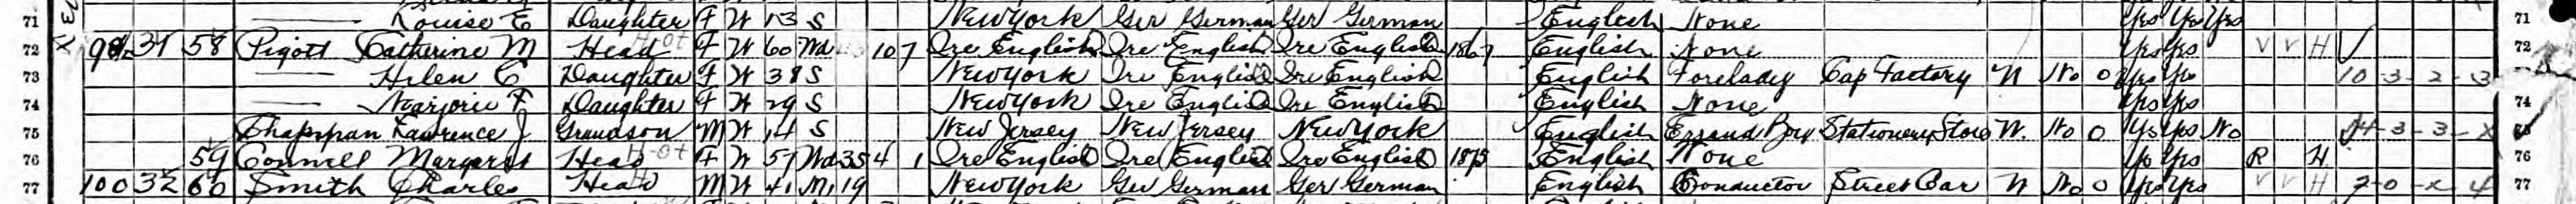 71 Louise E Daughter F W 13 S New York Ger German Ger German English None Yes Yes Yes 71
72 31 58 Pigott Catherine M Head F W 60 Wd 10 7 Ire English Ire English Ire English 1867 English None Yes Yes V V H 72
73 Helen C Daughter F W 38 S New York Ire English Ire English English Forelady Cap Factory W No 0 Yes Yes 10-3-2-3
74 Marjorie F Daughter F W 29 S New York Ire English Ire English English None Yes Yes 74
75 Chapman Lawrence J Grandson M W 14 S New Jersey New Jersey New York English Errand Boy Stationery Store W. No 0 Yes Yes No 3-3-X
76 59 Connell Margaret Head F W 57 Wd 35 4 1 Ire English Ire English Ire English 1875 English None Yes R H 76
77 100 32 60 Smith Charles Head M W 41 M1 19 New York Ger German Ger German English Conductor Street Car W No 0 Yes Yes V V H 7-0-X-4 77